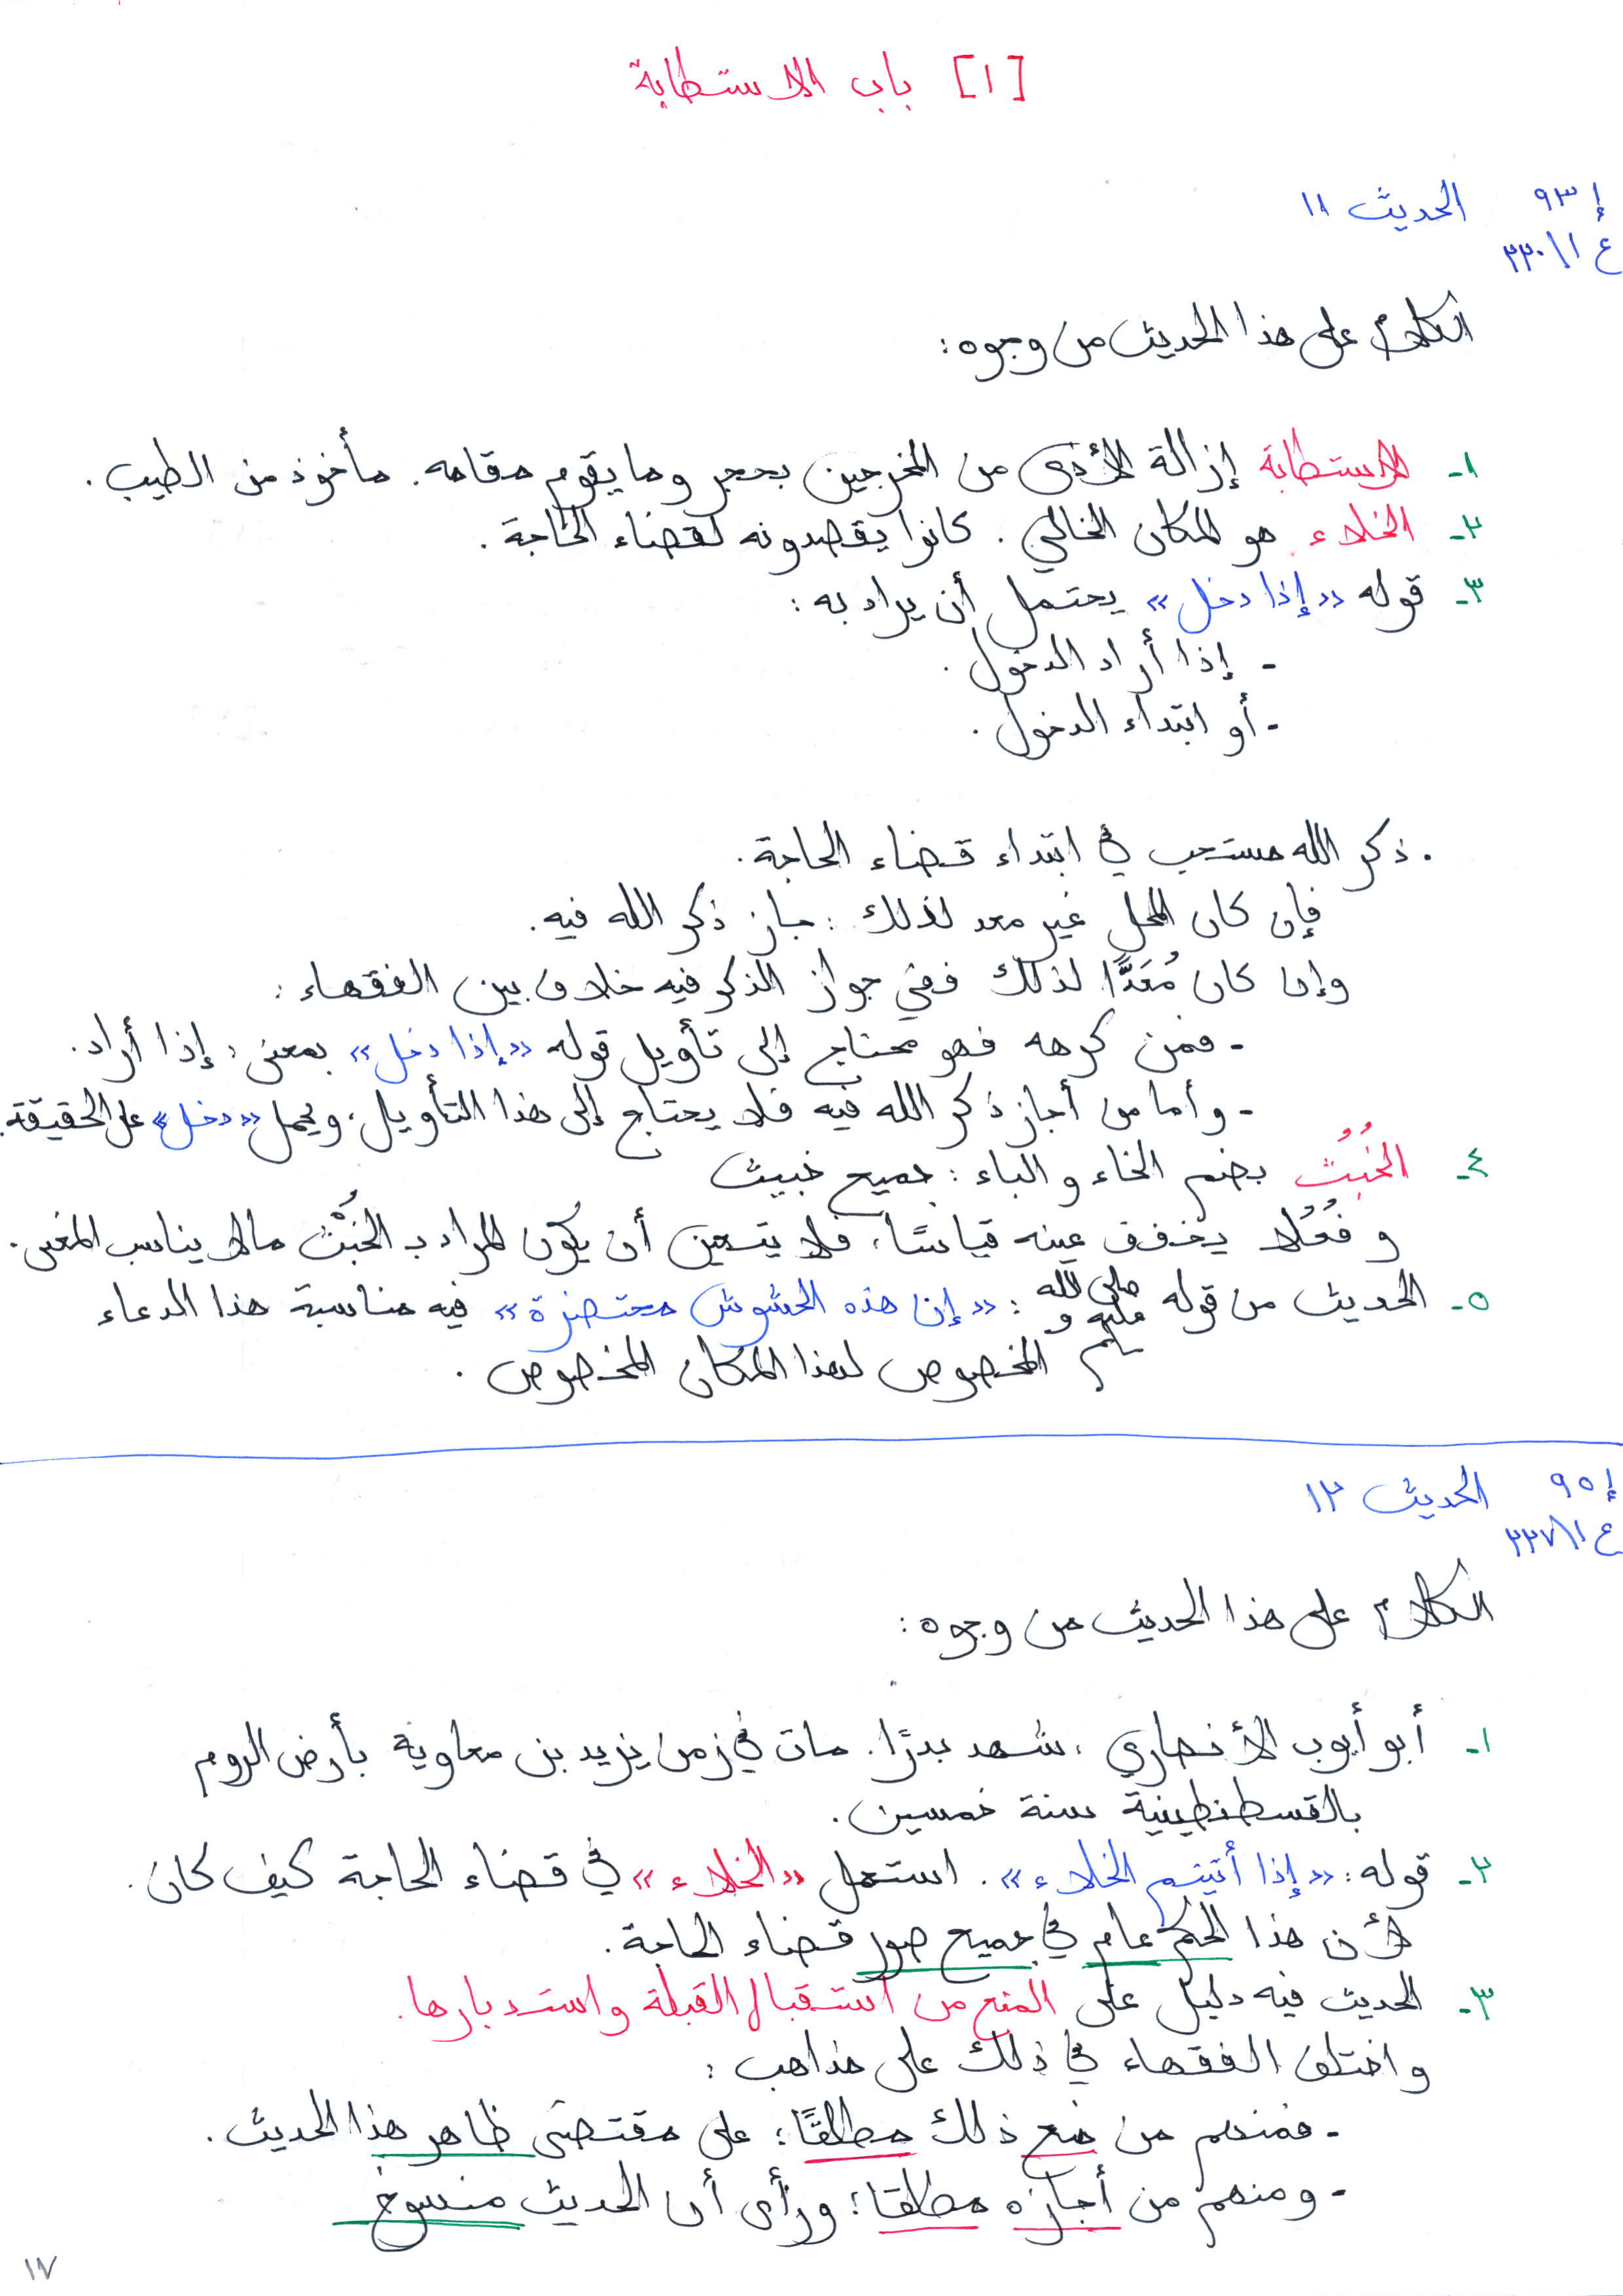 [١] باب الاستطابة
إ ٩٣ الحديث ١١
ع ١\٢٢٠
الكلام على هذا الحديث من وجوه:
١- الاستطابة إزالة الأذى من المخرجين بحجر وما يقوم مقامه. مأخوذ من الطيب.
٢- الخلاء هو المكان الخالي. كانوا يقصدونه لقضاء الحاجة.
٣- قوله «إذا دخل» يحتمل أن يراد به:
- إذا أراد الدخول.
- أو ابتداء الدخول.
. ذكر الله مستحب في ابتداء قضاء الحاجة.
فإن كان المحل غير معد لذلك: جاز ذكر الله فيه.
وإن كان مُعَدًّا لذلك ففي جواز الذكر فيه خلاف بين الفقهاء:
- فمن كرهه فهو محتاج إلى تأويل قوله «إذا دخل» بمعنى: إذا أراد.
- وأما من أجاز ذكر الله فيه فلا يحتاج إلى هذا التأويل، ويحمل «دخل» على الحقيقة.
٤- الخُبُثُ بضم الخاء والباء: جميع خبيث
وفُعُلا يخفف عينه قياسًا، فلا يتعين أن يكون المراد بـ الخُبْث مالا يناسب المعنى.
٥- الحديث من قوله صلى الله عليه و سلم: «إن هذه الحشوش محتضرة» فيه مناسبة هذا الدعاء
المخصوص لهذا المكان المخصوص.
إ ٩٥ الحديث ١٢
ع ١\٢٢٧
الكلام على هذا الحديث من وجوه:
١- أبو أيوب الأنصاري، شهد بدرًا. مات في زمن يزيد بن معاوية بأرض الروم
بالقسطنطينية سنة خمسين.
٢- قوله: «إذا أتيتم الخلاء». استعمل «الخلاء» في قضاء الحاجة كيف كان.
لأن هذا الحكم عام في جميع صور قضاء الحاجة.
٣- الحديث فيه دليل على المنع من استقبال القبلة واستدبارها.
واختلف الفقهاء في ذلك على مذاهب:
- فمنهم من منع ذلك مطلقًا؛ على مقتضى ظاهر هذا الحديث.
- ومنهم من أجازه مطلقا؛ ورأى أن الحديث منسوخ
١٧